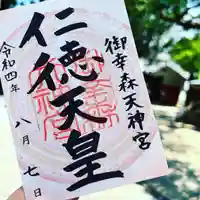 御幸森天神宮
仁徳天皇
令和四年
八月七日